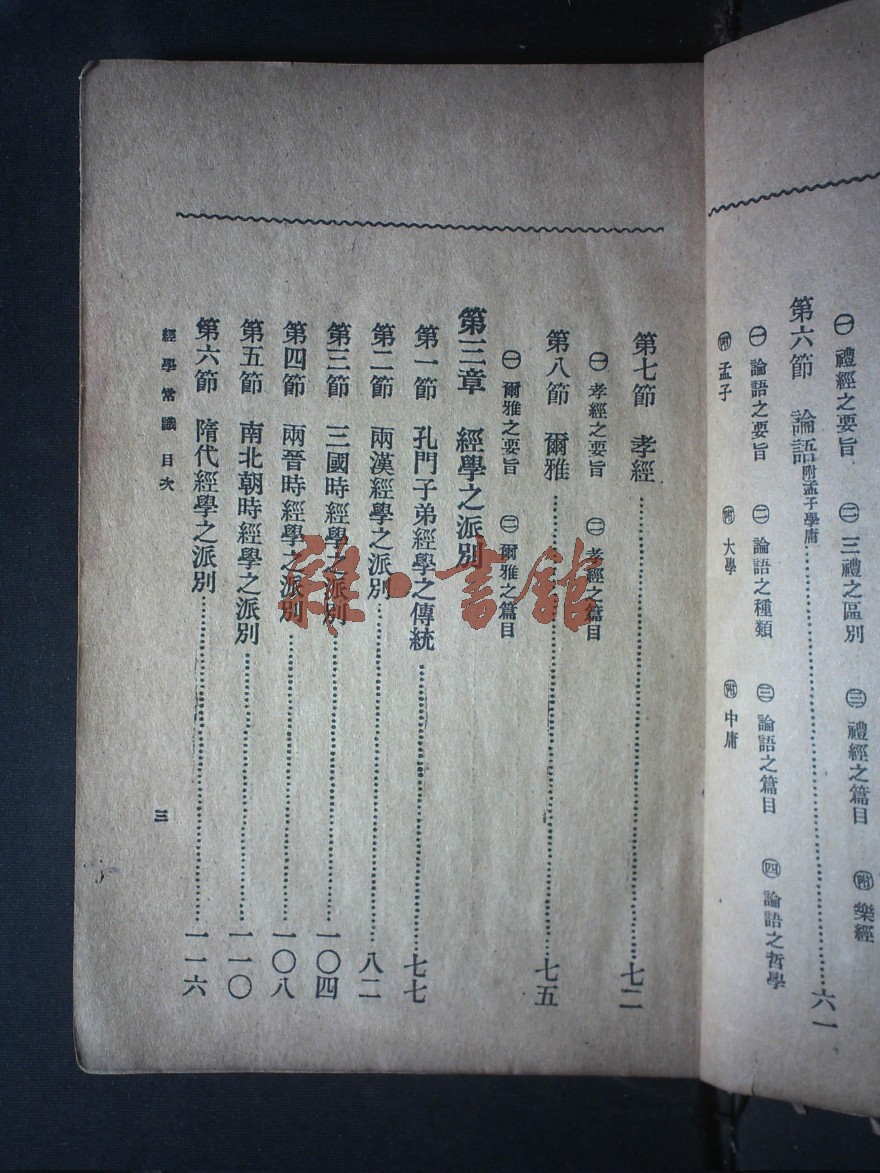 ㊀禮經之要旨 ㊁三禮之區別 ㊂禮經之篇目 ㊟樂經
第六節 論語附孟子學庸……六一
㊀論語之要旨 ㊁論語之種類 ㊂論語之篇目 ㊃論語之哲學
附孟子 附大學 附中庸
第七節 孝經……七二
㊀孝經之要旨 ㊁孝經之篇目
第八節 爾雅……七五
㊀爾雅之要旨 ㊁爾雅之篇目
第三章 經學之派別
第一節 孔門子弟經學之傳統……七七
第二節 兩漢經學之派別……八二
第三節 三國時經學之派別……一〇四
第四節 兩晉時經學之派別……一〇八
第五節 南北朝時經學之派別……一一〇
第六節 隋代經學之派別……一一六
經學常識 目次
三
雜·書館